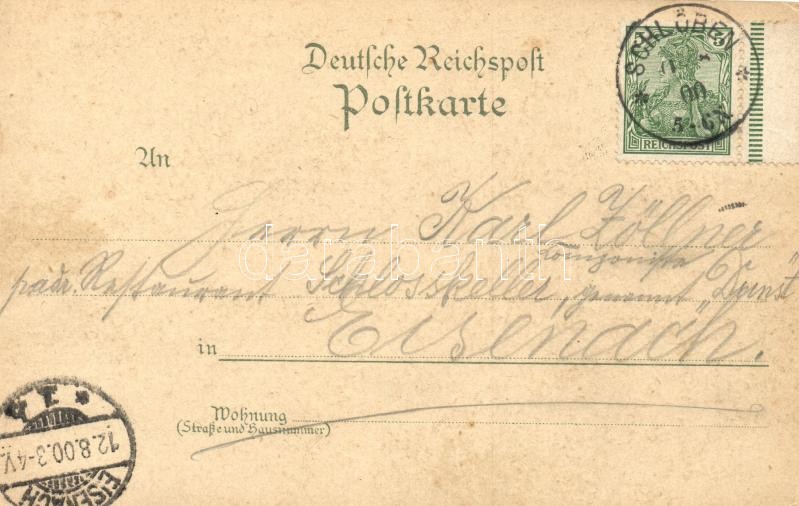 Deutsche Reichspost
Postkarte
An
Herrn Karl Zöllner
Komponiste
Restaurant Schlosskeller, genannt „Dunst“
in Eisenach.
Wohnung
(Straße und Hausnummer)
SCHLÖBEN
00
5
REICHSPOST
12.8.00.3-4V.
EISENACH
darabanth